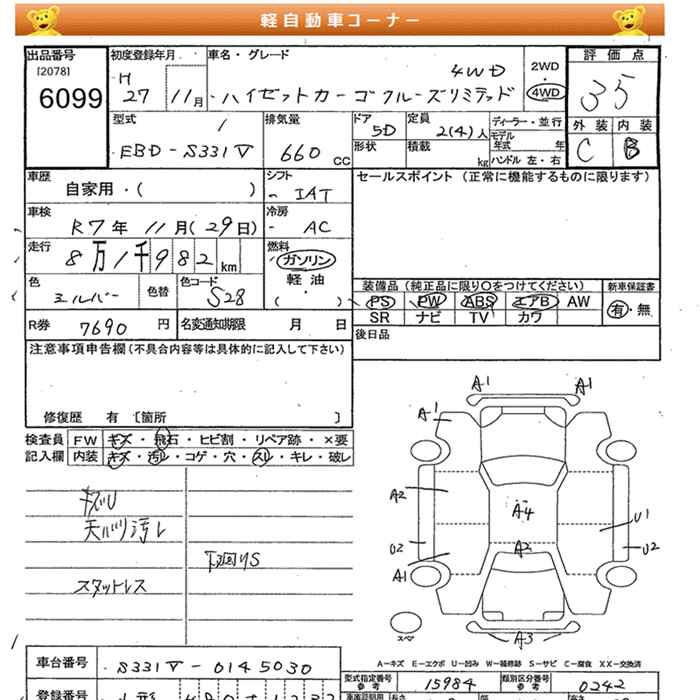 軽自動車コーナー
出品番号 初度登録年月 車名・グレード 2WD 評価点
[2078] H 4WD
6099 27 11月 ハイゼットカーゴクルーズリミテッド 4WD 35
型式 排気量 ドア 定員 ディーラー・並行 外装 内装
EBD-S331V 660cc 5D 2(4)人 モデル年式 年 C B
形状 積載 kg ハンドル 左・右
車歴 シフト セールスポイント (正常に機能するものに限ります)
自家用・( ) IAT
車検 冷房
R7年11月(29日) AC
走行 燃料
8万1千982km ガソリン
色 色替 色コード 軽油 装備品 (純正品に限り○をつけてください) 新車保証書
シルバー S28 ( ) PS PW ABS エアB AW 有・無
SR ナビ TV カワ
R券 7690円 名変通知期限 月 日 後日品
注意事項申告欄(不具合内容等は具体的に記入して下さい)
修復歴 有 [箇所 ]
検査員 FW キズ・飛石・ヒビ割・リペア跡・×要
記入欄 内装 キズ・汚レ・コゲ・穴・スレ・キレ・破レ
キズU
天バリ汚レ
下回りS
スタットレス
A1 A1
A1
A2 A4 U1
U2 A2 U2
A1
スペア A3
A-キズ E-エクボ U-凹み W-補修跡 S-サビ C-腐食 XX-交換済
車台番号 S331V-0145030
型式指定番号 参考 15984 類別区分番号 参考 0242
登録番号